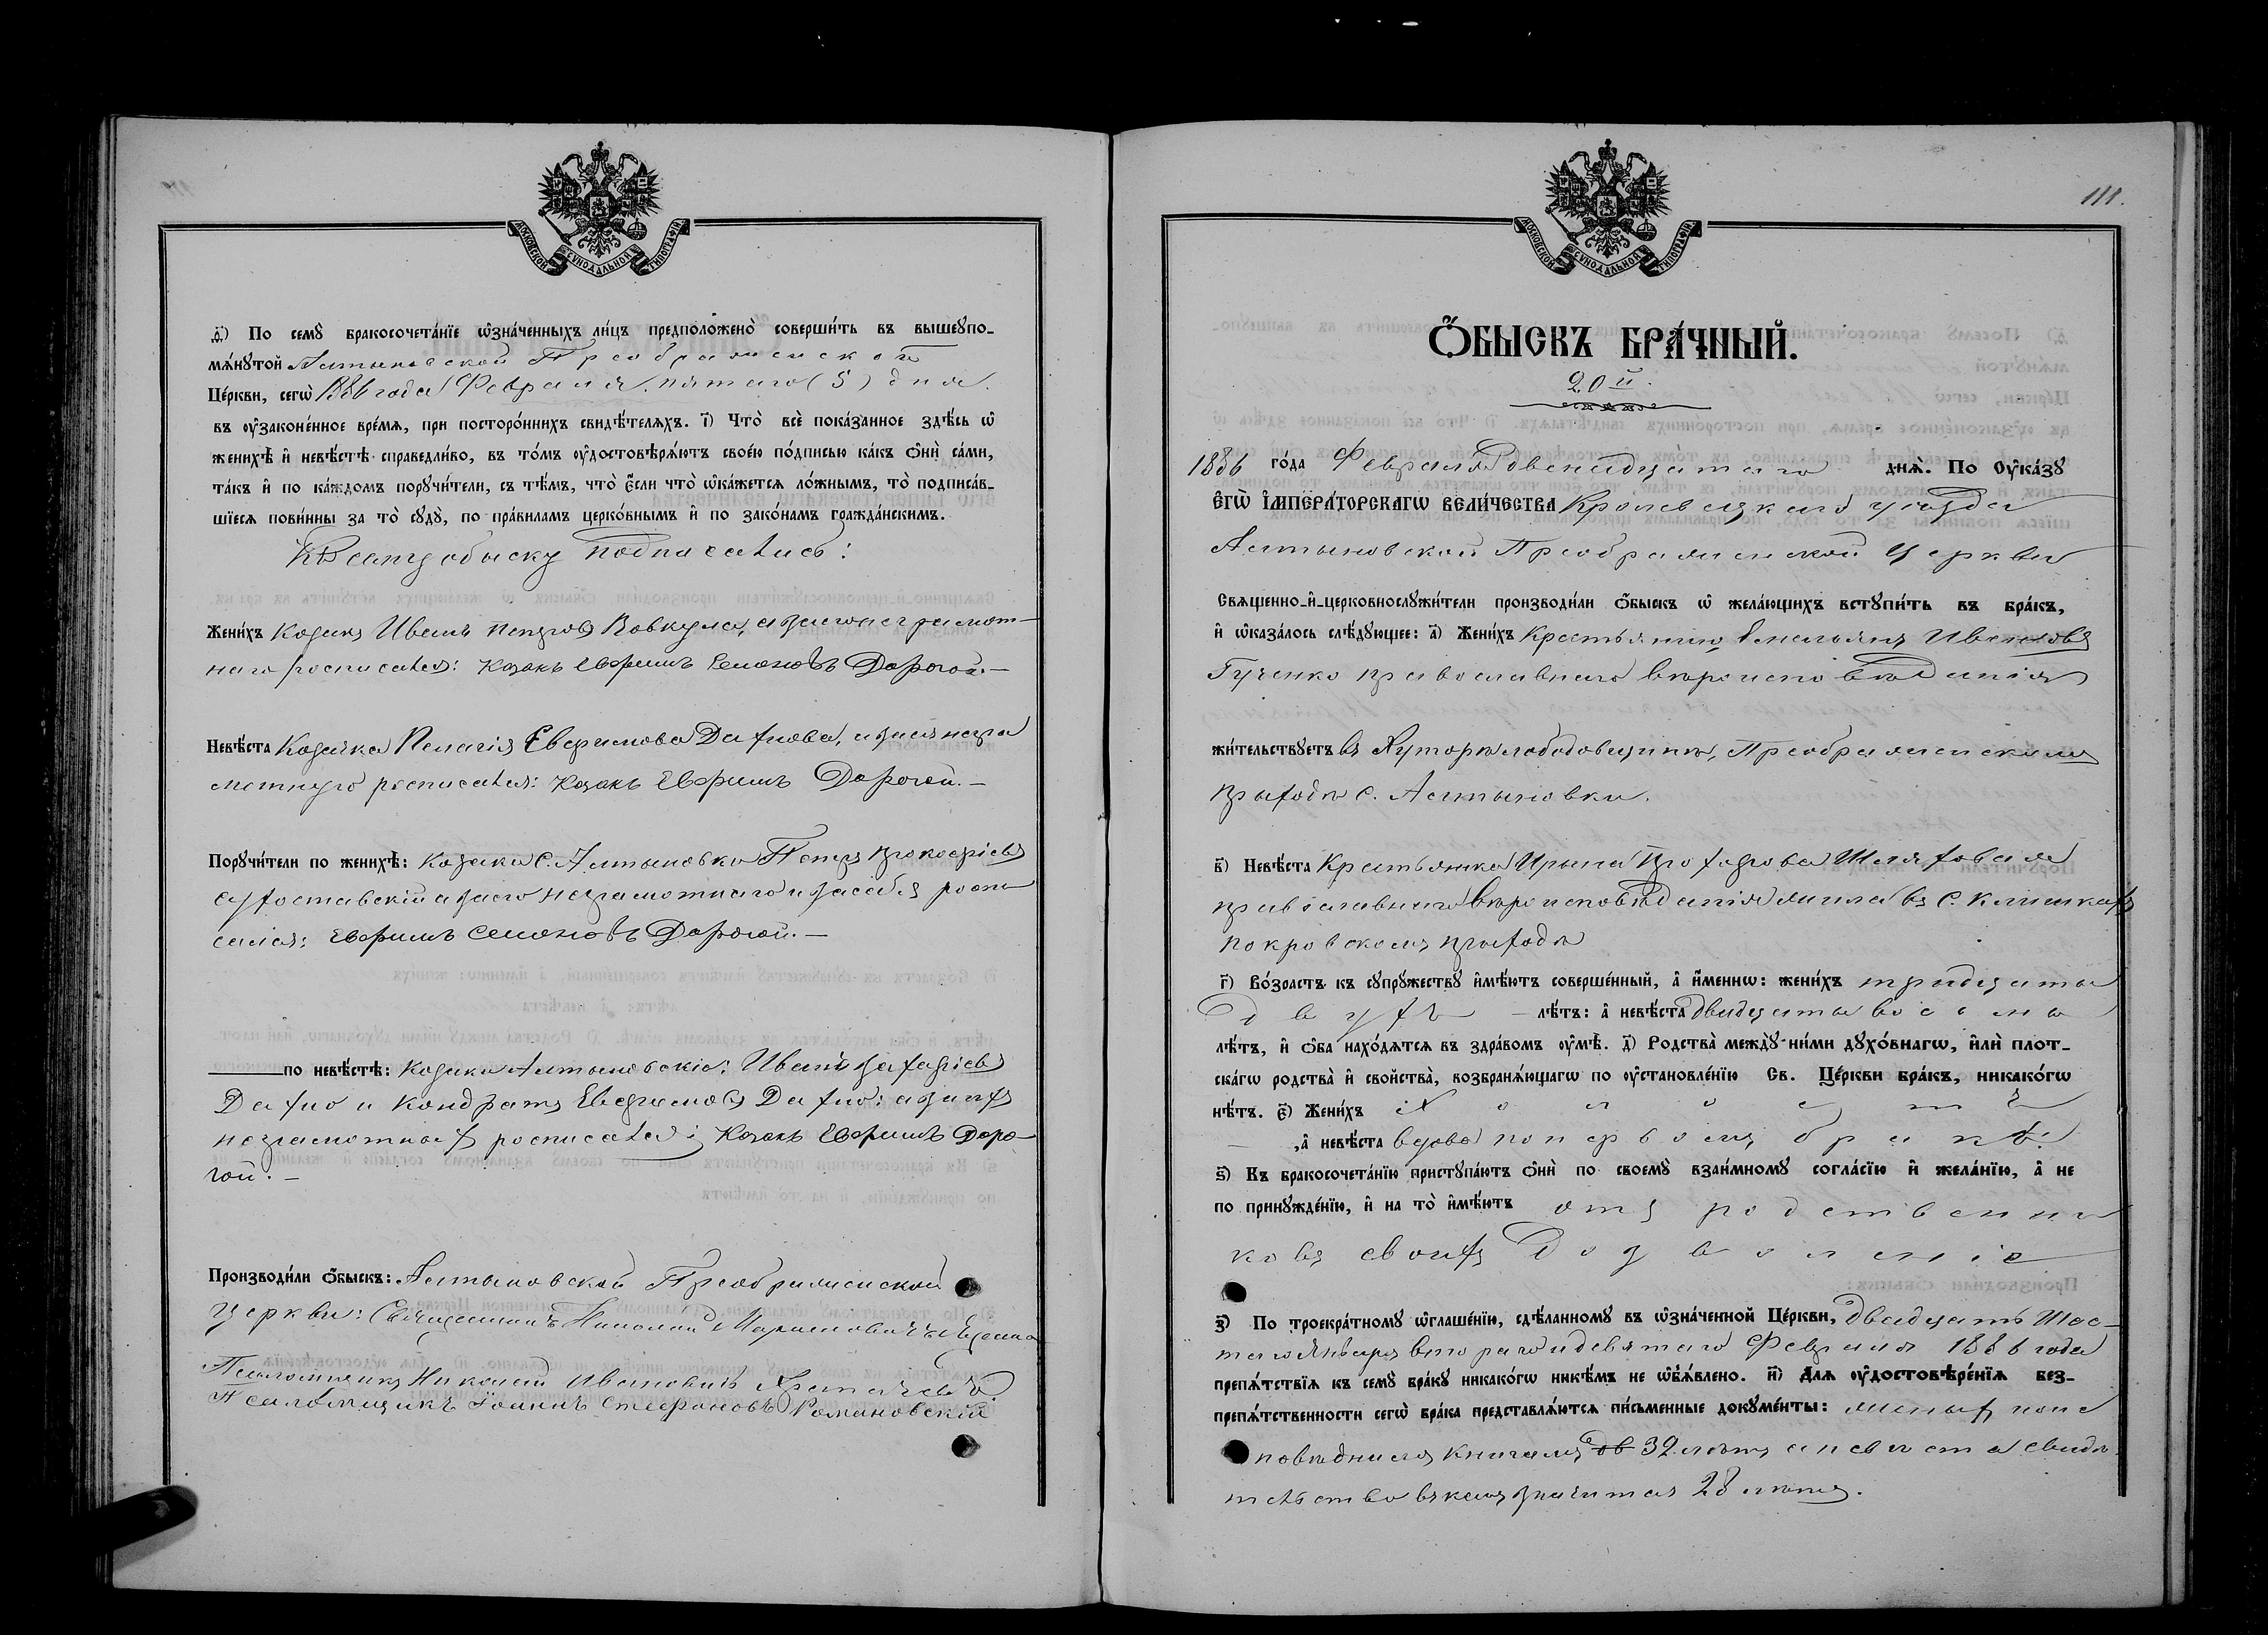 МОСКОВСКОЙ СѴНОДАЛЬНОЙ ТИПОГРАФІИ
д҃і) По семꙋ̀ бракосочета́нїе ѡ҆зна́ченныхъ ли́цъ предположено̀ соверши́ть въ вышеꙋпо-
мѧ́нꙋтой Алтыновской Преображенской
Це́ркви, сегѡ̀ 1886 года Февраля пятаго (5) дня.
въ ᲂу҆зако́ненное вре́мѧ, при посторо́ннихъ свидѣ́телѧхъ. і҃) Что̀ всѐ пока́занное здѣ́сь ѡ҆
женихѣ̀ и҆ невѣ́стѣ справедли́во, въ то́мъ ᲂу҆достовѣрѧ́ютъ свое́ю по́дписью ка́къ ѻ҆нѝ са́ми,
та́къ и҆ по ка́ждомъ порꙋчи́тели, съ тѣ́мъ, что̀ є҆́сли что̀ ѡ҆ка́жетсѧ ло́жнымъ, то̀ подписа́в-
шїесѧ пови́нны за то̀ сꙋдꙋ̀, по пра́виламъ церко́внымъ и҆ по зако́намъ гражда́нскимъ.
Къ сему обыску подписались:
Жени́хъ Козакъ Иванъ Петровъ Вовкума, а за него неграмот-
наго росписался: козакъ Евфимъ Семеновъ Дорогой.—
Невѣ́ста Козачка Пелагія Евфимова Дахнова, а за ея негра
мотную росписался: козакъ Евфимъ Дорогой.—
Порꙋчи́тели по женихѣ̀: козаки с. Алтыновки Петръ Прокофіевъ
а за его неграмотнаго и за себя роспи
сался: Евфимъ Семеновъ Дорогой.—
по невѣ́стѣ: козаки Алтыновскіе: Иванъ Захаріевъ
Дахно и Кондратъ Евфимовъ Дахно: а за ихъ
неграмотныхъ росписался: козакъ Евфимъ Доро-
гой.—
Производи́ли ѻ҆́быскъ: Алтыновской Преображенской
церкви: Священникъ Николай
Псаломщикъ Николай Ивановичъ
Псаломщикъ Іоаннъ Стефановъ Романовскій
111.
МОСКОВСКОЙ СѴНОДАЛЬНОЙ ТИПОГРАФІИ
Ѻ҆́БЫСКЪ БРА́ЧНЫЙ.
20й.
1886 го́да Февраля двенадцатаго днѧ̀. По Оу҆ка́зꙋ
є҆гѡ̀ і҆мпера́торскагѡ вели́чества Кролевецкаго уѣзда
Алтыновской Преображенской церкви
Сващенно-и҆-церковнослꙋжи́тели производи́ли ѻ҆́быскъ ѡ҆ жела́ющихъ встꙋпи́ть въ бра́къ,
и҆ ѡ҆каза́лось слѣ́дꙋющее: а҃) Жени́хъ Крестьянинъ Емельянъ Ивановъ
Гученко православнаго вѣроисповѣданія
жи́тельствꙋетъ въ Хуторѣ Лободовщинѣ, Преображенскомъ
приходѣ с. Алтыновки.
в҃) Невѣ́ста Крестьянка Ирина Прохорова Шляховая
православнаго вѣроисповѣданія жила въ с. Клишкахъ
покровскомъ приходѣ
г҃) Во́зрастъ къ сꙋпрꙋ́жествꙋ и҆мѣ́ютъ соверше́нный, а҆ и҆́меннѡ: жени́хъ тридцати
двухъ лѣ́тъ: а҆ невѣ́ста двадцати восьми
лѣ́тъ, и҆ ѻ҆́ба нахо́дѧтсѧ въ здра́вомъ ᲂу҆мѣ̀. д҃) Родства̀ междꙋ̀ ни́ми дꙋхо́внагѡ, и҆лѝ плот-
ска́гѡ родства̀ и҆ сво́йства̀, возбранѧ́ющагѡ по ᲂу҆становле́нїю Св. Це́ркви бра́къ, никако́гѡ
нѣ́тъ. є҃) Жени́хъ Холостъ
, а҆ невѣ́ста вдова по первомъ бракѣ.
ѕ҃) Къ бракосочета́нїю пристꙋпа́ютъ ѻ҆нѝ по своемꙋ̀ взаи́мномꙋ согла́сїю и҆ жела́нїю, а҆ не
по принꙋжде́нїю, и҆ на то̀ и҆мѣ́ютъ отъ родственни
ковъ своихъ дозволеніе
з҃) По троекра́тномꙋ ѡ҆глаше́нїю, сдѣ́ланномꙋ въ ѡ҆зна́ченной Це́ркви, двадцать шес-
таго Января второго и девятаго Февраля 1886 года
препѧ́тствїѧ къ семꙋ̀ бра́кꙋ никако́гѡ никѣ́мъ не ѡ҆б̾ѧ́влено. и҃) Для ᲂу҆достовѣре́нїѧ без-
препѧ́тственности сегѡ̀ бра́ка представлѧ́ютсѧ пи́сьменные докꙋме́нты: женихъ по ис
повѣднымъ книгамъ 32 лѣтъ а невѣста свидѣ
тельство въ коемъ значится 28 лѣтъ.